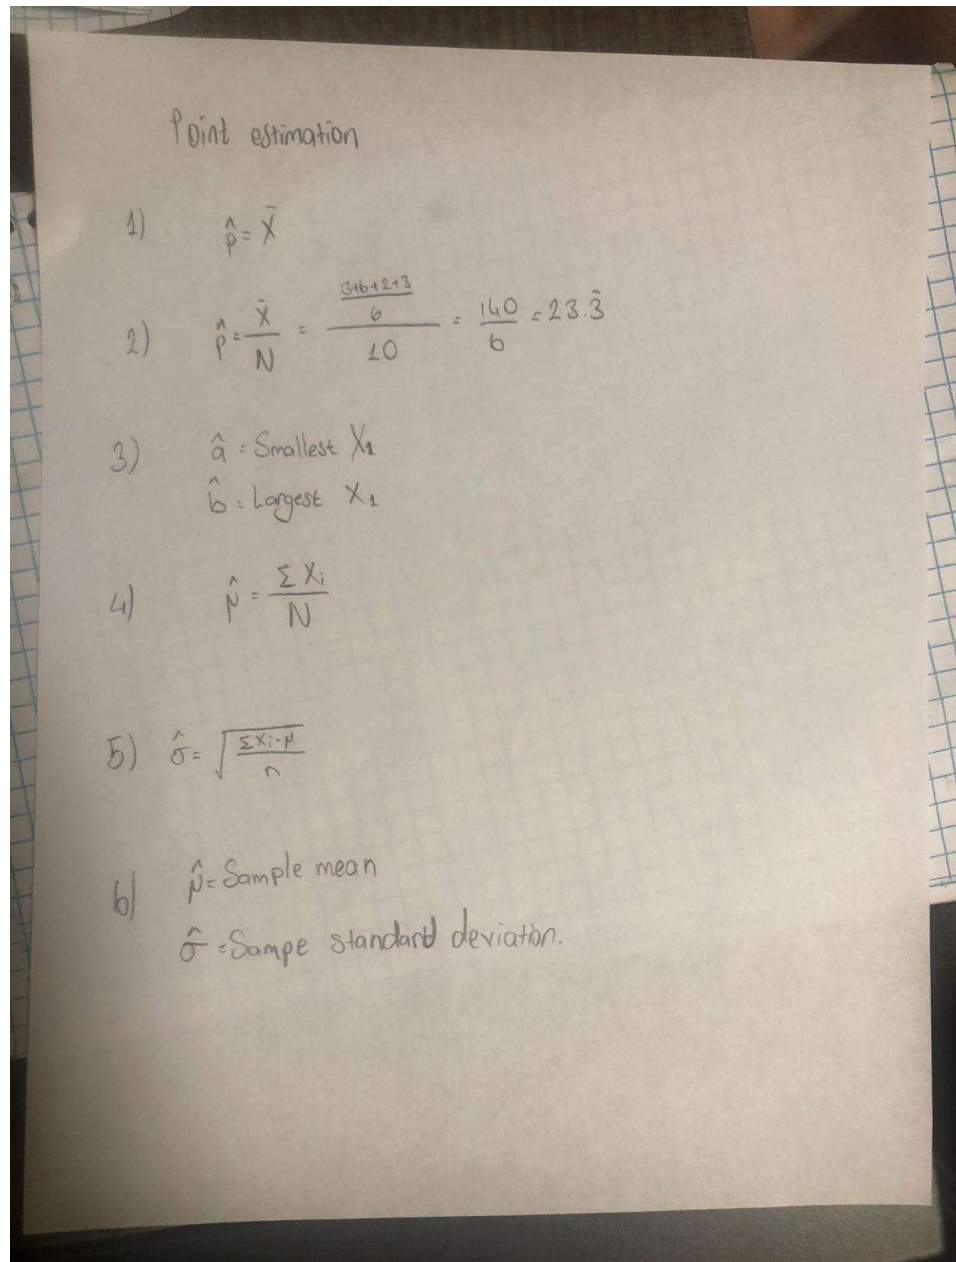 Point estimation
1) p̂ = X̄
2) p̂ = X̄/N = ((3+6+2+3)/6)/10 = 140/6 = 23.3̄
3) â = Smallest X₁
b̂ = Largest X₁
4) μ̂ = Σ Xi / N
5) σ̂ = √((ΣXi-μ)/n)
6) μ̂ = Sample mean
σ̂ = Sampe standard deviation.